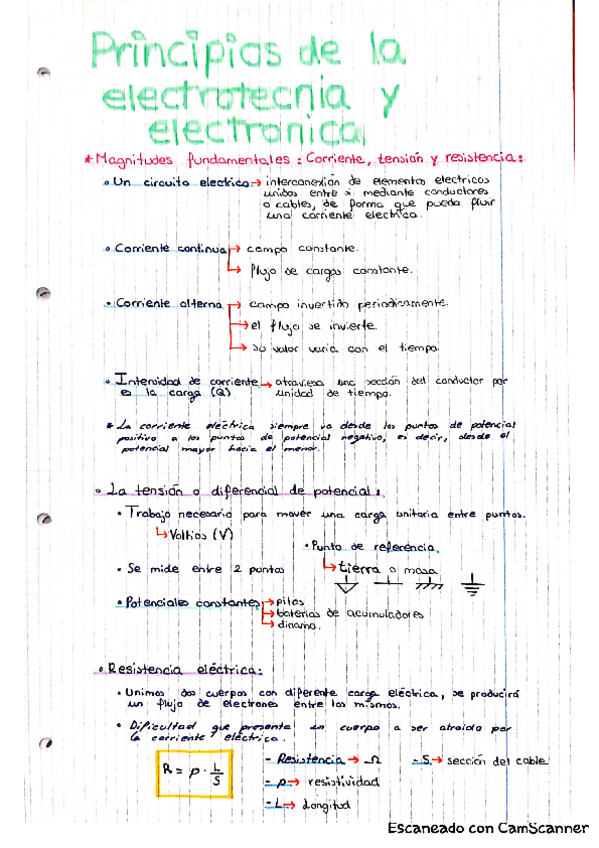 Principios de la
electrotecnia y
electronica
* Magnitudes fundamentales: Corriente, tensión y resistencia:
• Un circuito electrico → interconexión de elementos electricos
unidos entre si mediante conductores
o cables, de forma que pueda fluir
una corriente electrica.
• Corriente continua → campo constante.
↳ flujo de cargas constante.
• Corriente alterna → campo invertido periodicamente.
→ el flujo se invierte.
↳ su valor varia con el tiempo.
• Intensidad de corriente → atraviesa una sección del conductor por
es la carga (Q) unidad de tiempo.
* La corriente eléctrica siempre va desde los puntos de potencial
positivo a los puntos de potencial negativo, es decir, desde el
potencial mayor hacia el menor.
• La tensión o diferencial de potencial:
• Trabajo necesario para mover una carga unitaria entre puntos.
↳ Voltios (V)
• Punto de referencia.
• Se mide entre 2 puntos ↳ tierra o masa
• Potenciales constantes → pilas
→ baterias de acumuladores
↳ dinamo.
• Resistencia eléctrica:
• Unimos dos cuerpos con diferente carga eléctrica, se producirá
un flujo de electrones entre los mismos.
• Dificultad que presenta un cuerpo a ser atraido por
la corriente eléctrica.
R = ρ · L/S
- Resistencia → Ω - S → sección del cable
- ρ → resistividad
- L → Longitud
Escaneado con CamScanner